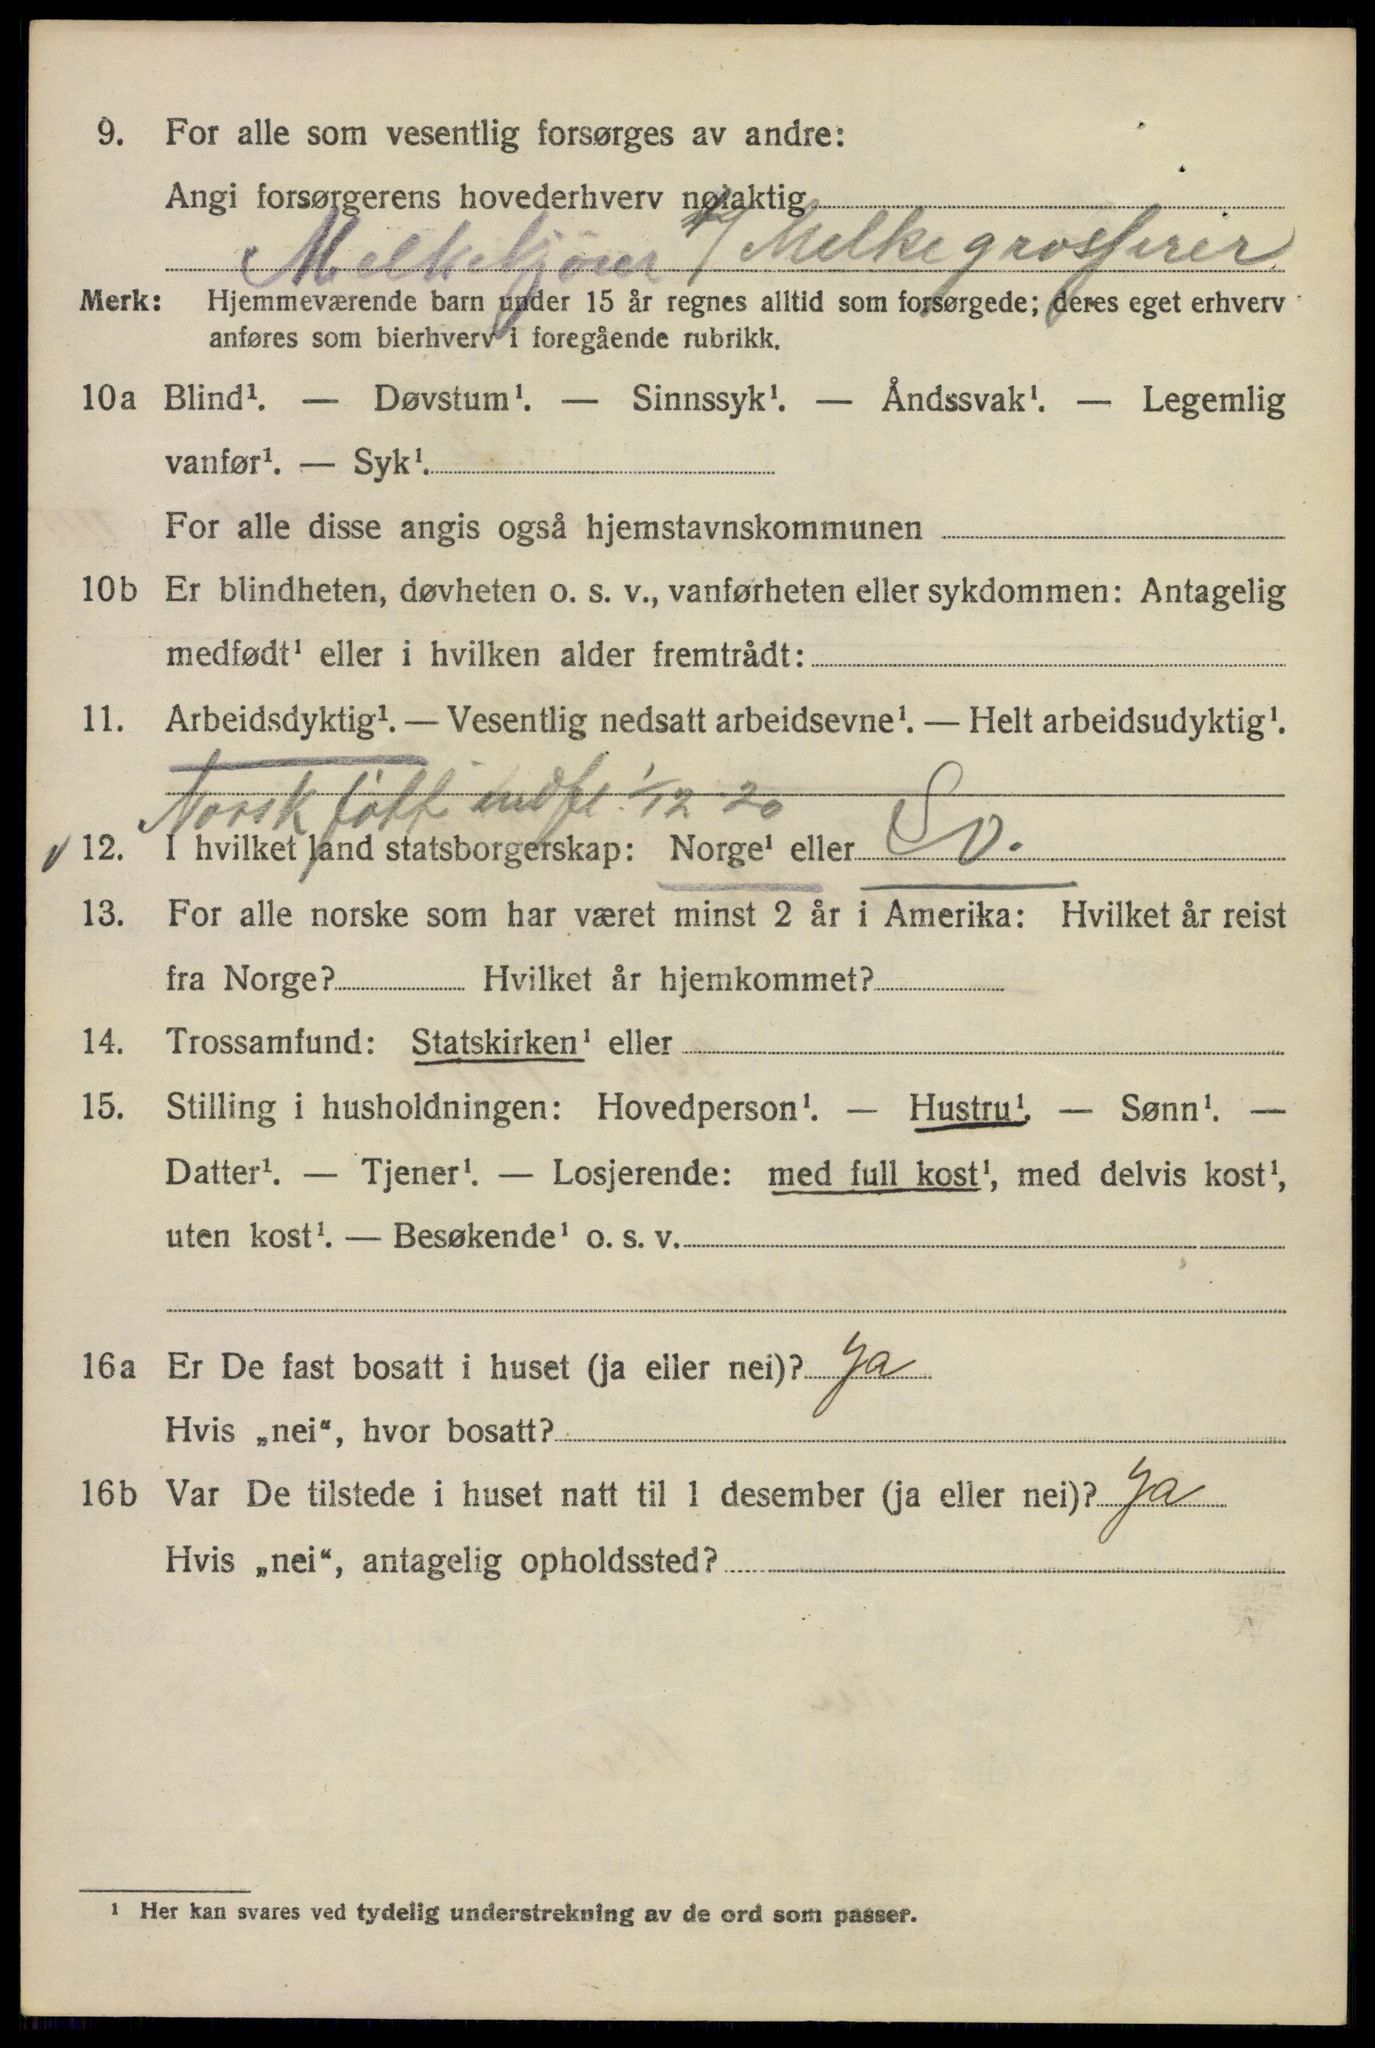 9. For alle som vesentlig forsørges av andre:
Angi forsørgerens hovederhverv nøiaktig
Melkekjører / Melkegrosserer
Merk: Hjemmeværende barn under 15 år regnes alltid som forsørgede; deres eget erhverv
anføres som bierhverv i foregående rubrikk.
10a Blind¹. — Døvstum¹. — Sinnssyk¹. — Åndssvak¹. — Legemlig
vanfør¹. — Syk¹.
For alle disse angis også hjemstavnskommunen
10b Er blindheten, døvheten o. s. v., vanførheten eller sykdommen: Antagelig
medfødt¹ eller i hvilken alder fremtrådt:
11. Arbeidsdyktig¹. — Vesentlig nedsatt arbeidsevne¹. — Helt arbeidsudyktig¹.
Norsk født indfl. 1/12 20
12. I hvilket land statsborgerskap: Norge¹ eller Sv.
13. For alle norske som har været minst 2 år i Amerika: Hvilket år reist
fra Norge? Hvilket år hjemkommet?
14. Trossamfund: Statskirken¹ eller
15. Stilling i husholdningen: Hovedperson¹. — Hustru¹. — Sønn¹. —
Datter¹. — Tjener¹. — Losjerende: med full kost¹, med delvis kost¹,
uten kost¹. — Besøkende¹ o. s. v.
16a Er De fast bosatt i huset (ja eller nei)? Ja
Hvis „nei“, hvor bosatt?
16b Var De tilstede i huset natt til 1 desember (ja eller nei)? Ja
Hvis „nei“, antagelig opholdssted?
¹ Her kan svares ved tydelig understrekning av de ord som passer.